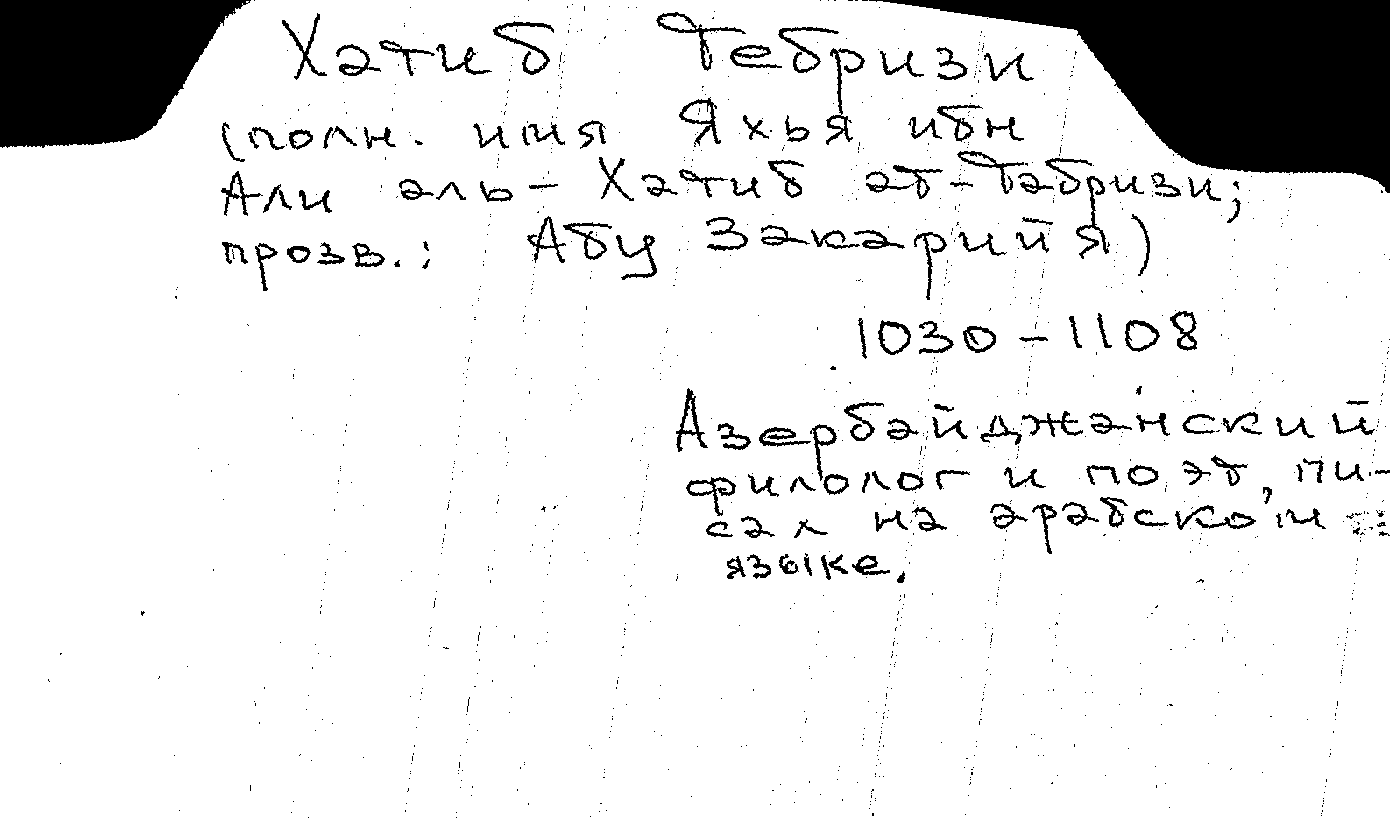 Хатиб Тебризи
(полн. имя Яхья ибн
Али аль-Хатиб ат-Табризи;
прозв.: Абу Закарийя)
1030-1108
Азербайджанский
филолог и поэт, пи-
сал на арабском
языке.